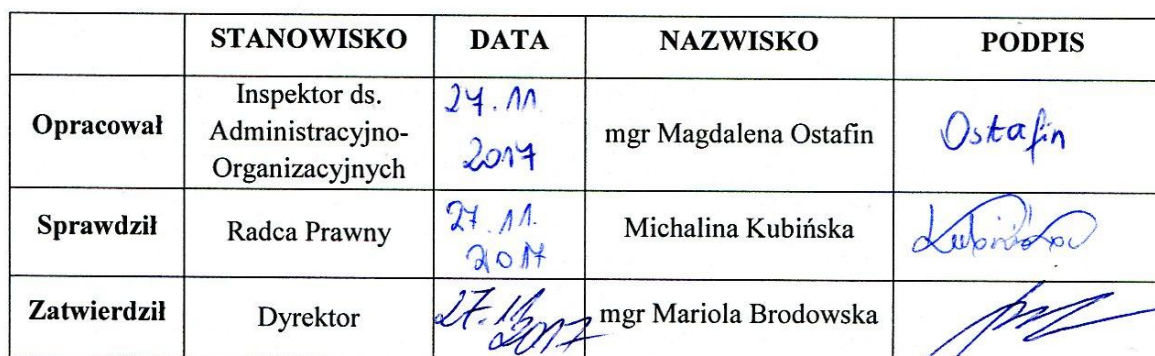 STANOWISKO DATA NAZWISKO PODPIS
Opracował Inspektor ds. Administracyjno-Organizacyjnych 27.11. 2017 mgr Magdalena Ostafin Ostafin
Sprawdził Radca Prawny 27.11. 2017 Michalina Kubińska
Zatwierdził Dyrektor 27.11.2017 mgr Mariola Brodowska